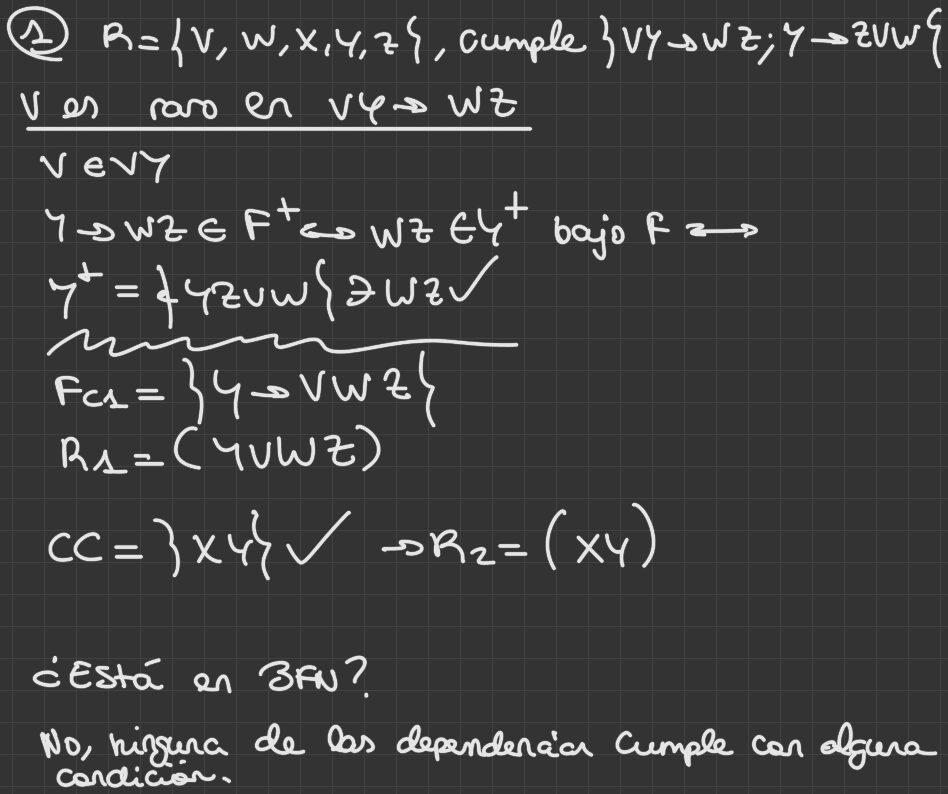 ① R={V, W, X, Y, Z}, cumple {VY→WZ; Y→ZVW}
V es raro en VY→ WZ
V ∈ VY
Y→WZ ∈ F⁺ ↔ WZ ∈ Y⁺ bajo F ↔
Y⁺ = {YZVW} ∋ WZ ✓
Fc1 = {Y→ VWZ}
R1=(YVWZ)
CC = {XY} ✓ →R2= (XY)
¿Está en 3FN?
No, ninguna de las dependencias cumple con alguna
condición.